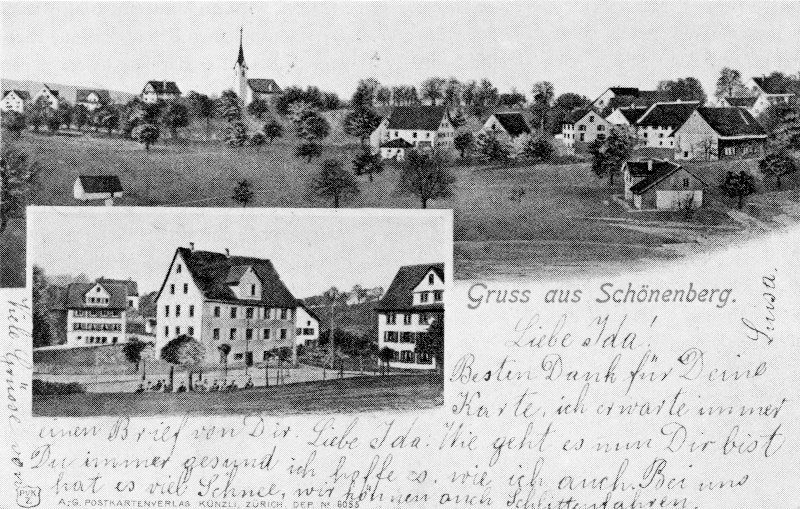 Gruss aus Schönenberg.
Liebe Ida!
Besten Dank für Deine
Karte, ich erwarte immer
einen Brief von Dir. Liebe Ida! Wie geht es nun Dir bist
Du immer gesund ich hoffe es. wie ich auch. Bei uns
hat es viel Schnee, wir können auch Schlittenfahren.
Viele Grüsse von
Luisa.
PVKZ
A.G. POSTKARTENVERLAG KÜNZLI, ZÜRICH. DEP. No 6055